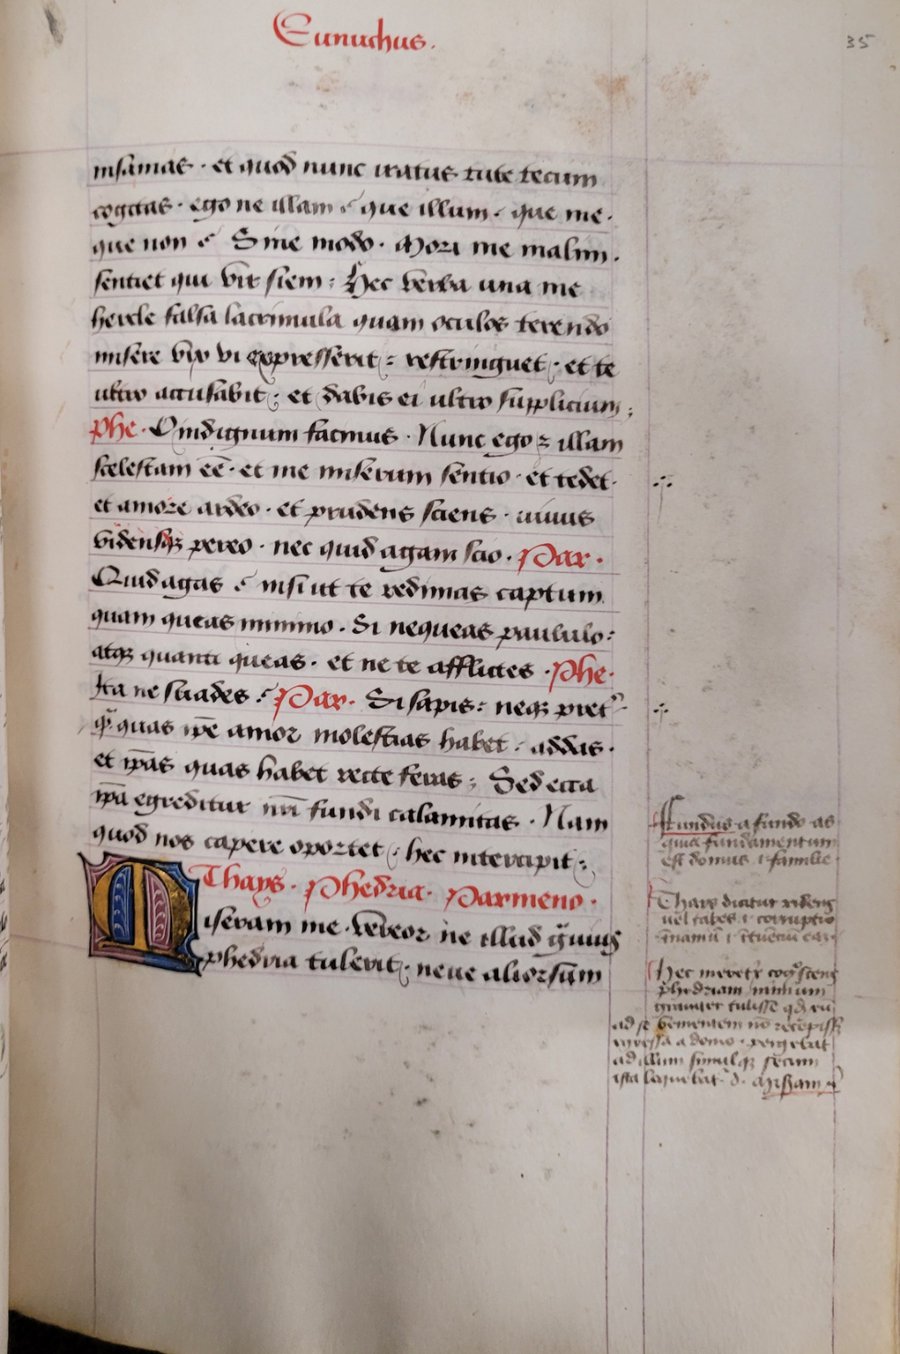 Eunuchus.
35
insanias · et quod nunc iratus tute tecum
cogitas · ego ne illam ? que illum · que me ·
que non ? Sine modo · Mori me malim .
sentiet qui vir siem : Hec verba una me
hercle falsa lacrimula quam oculos terendo
misere vix vi expresserit : restringuet · et te
ultro accusabit ; et dabis ei ultro supplicium ;
Phe · O indignum facinus · Nunc ego et illam
scelestam eē · et me miserum sentio · et tedet ·
et amore ardeo · et prudens sciens · vivus
vidensqꝫ pereo · nec quid agam scio . Par .
Quid agas ? nisi ut te redimas captum
quam queas minimo . Si nequeas paululo :
atqꝫ quanti queas · et ne te afflictes · Phe ·
Ita ne suades ? Par · Si sapis : neqꝫ pret᷑ ·
qͣ quas ip̄e amor molestias habet · addas ·
et ip̄as quas habet recte feras ; Sed ecca
ip̄a egreditur nr̄i fundi calamitas · Nam
quod nos capere oportet : hec intercipit :
Thays · Phedria · Parmeno ·
Miseram me · vereor ne illud gͣuius
phedria tulerit : neve aliorsum
Fundus a fundo as
quia fundamentum
est domus et familie
Thays dicitur
vel tabes et corruptio
Hec
phedriam nimium
graviter tulisse qd eū
ad se venientem nō recepisset
egressa a domo · pergebat
ad illum simulqꝫ secum
ista loquebat᷑ · d · Miseram